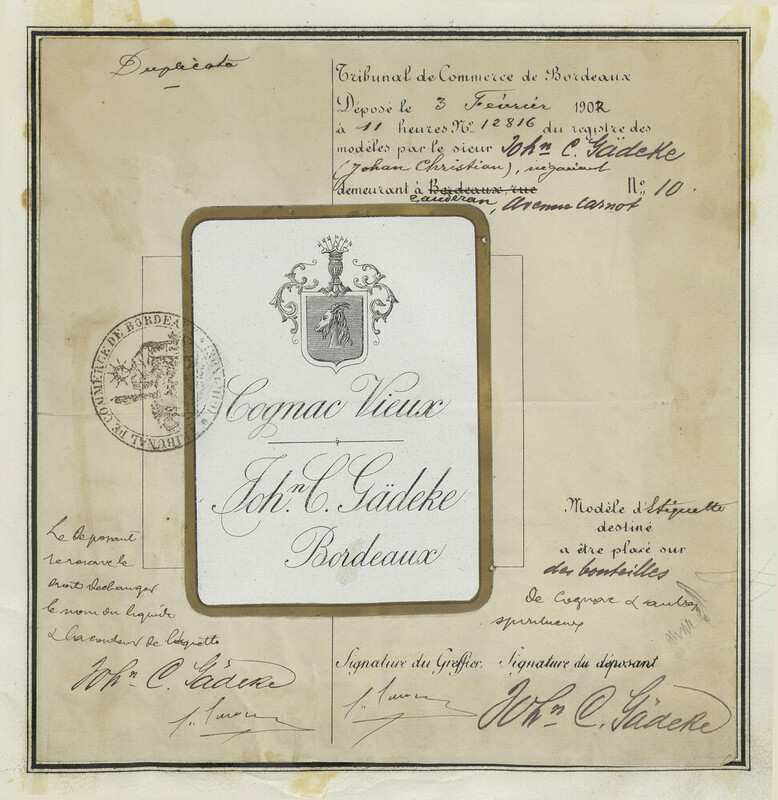 Duplicata
Tribunal de Commerce de Bordeaux
Déposé le 3 Février 1902
à 11 heures N° 12816 du registre des
modèles par le sieur Johⁿ C. Gädeke
(Johan Christian), négociant
demeurant à Bordeaux, rue N° 10.
Caudéran, Avenue Carnot
TRIBUNAL DE COMMERCE DE BORDEAUX
Cognac Vieux
Johⁿ. C. Gädeke
Bordeaux
Le déposant
se réserve le
droit de changer
le nom du liquide
& la couleur de l'étiquette
Johⁿ C. Gädeke
Modèle d'Etiquette
destiné
a être placé sur
des bouteilles
de cognac & autres
spiritueux
Signature du Greffier. Signature du déposant
Johⁿ C. Gädeke